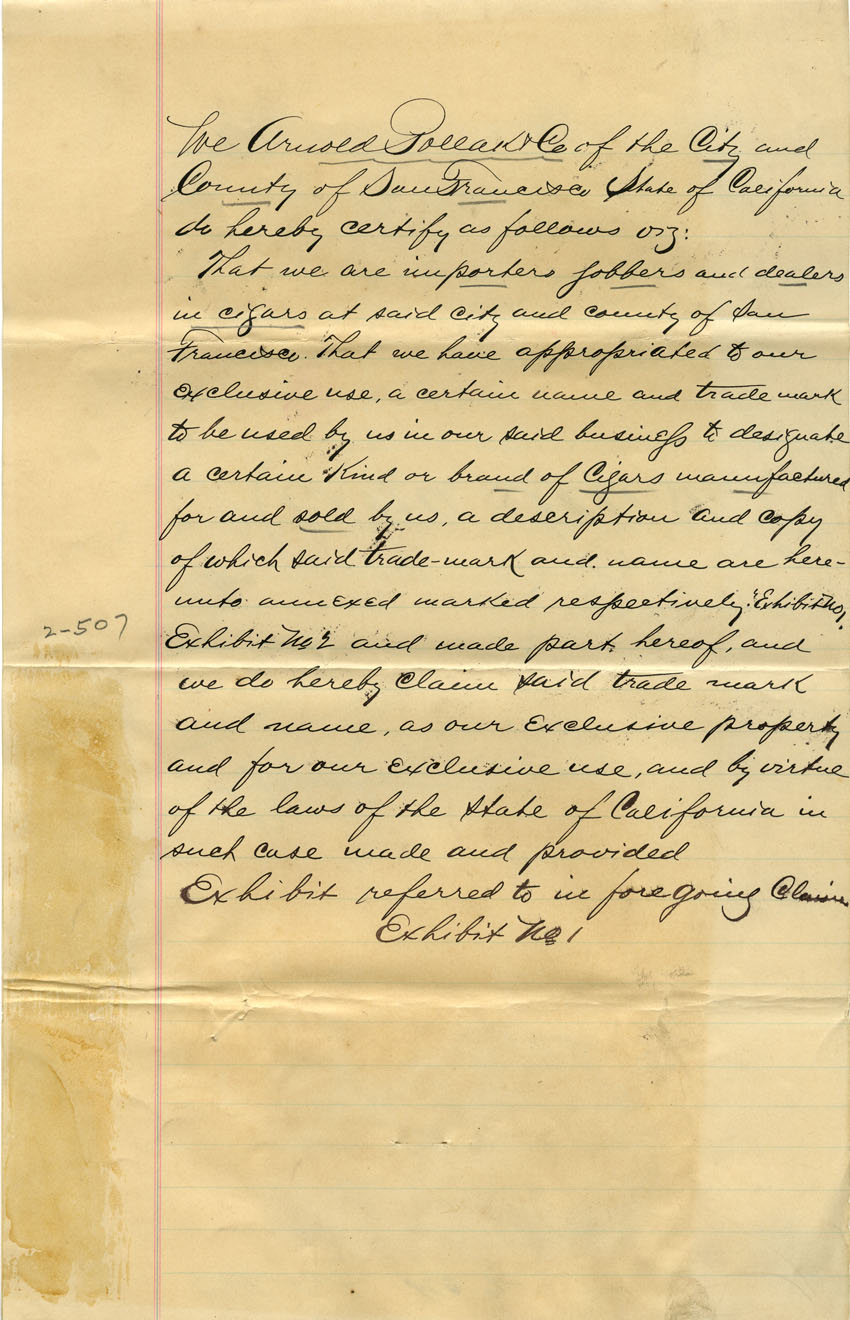 We Arnold Pollak & Co of the City and
County of San Francisco State of California
do hereby certify as follows viz:
That we are importers jobbers and dealers
in cigars at said city and county of San
Francisco. That we have appropriated to our
exclusive use, a certain name and trade mark
to be used by us in our said business to designate
a certain Kind or brand of Cigars manufactured
for and sold by us, a description and copy
of which said trade-mark and. name are here-
unto annexed marked respectively "Exhibit No 1.
Exhibit No 2 and made part hereof, and
we do hereby claim said trade mark
and name, as our exclusive property
and for our exclusive use, and by virtue
of the laws of the State of California in
such case made and provided
Exhibit referred to in foregoing Claim
Exhibit No 1
2-507